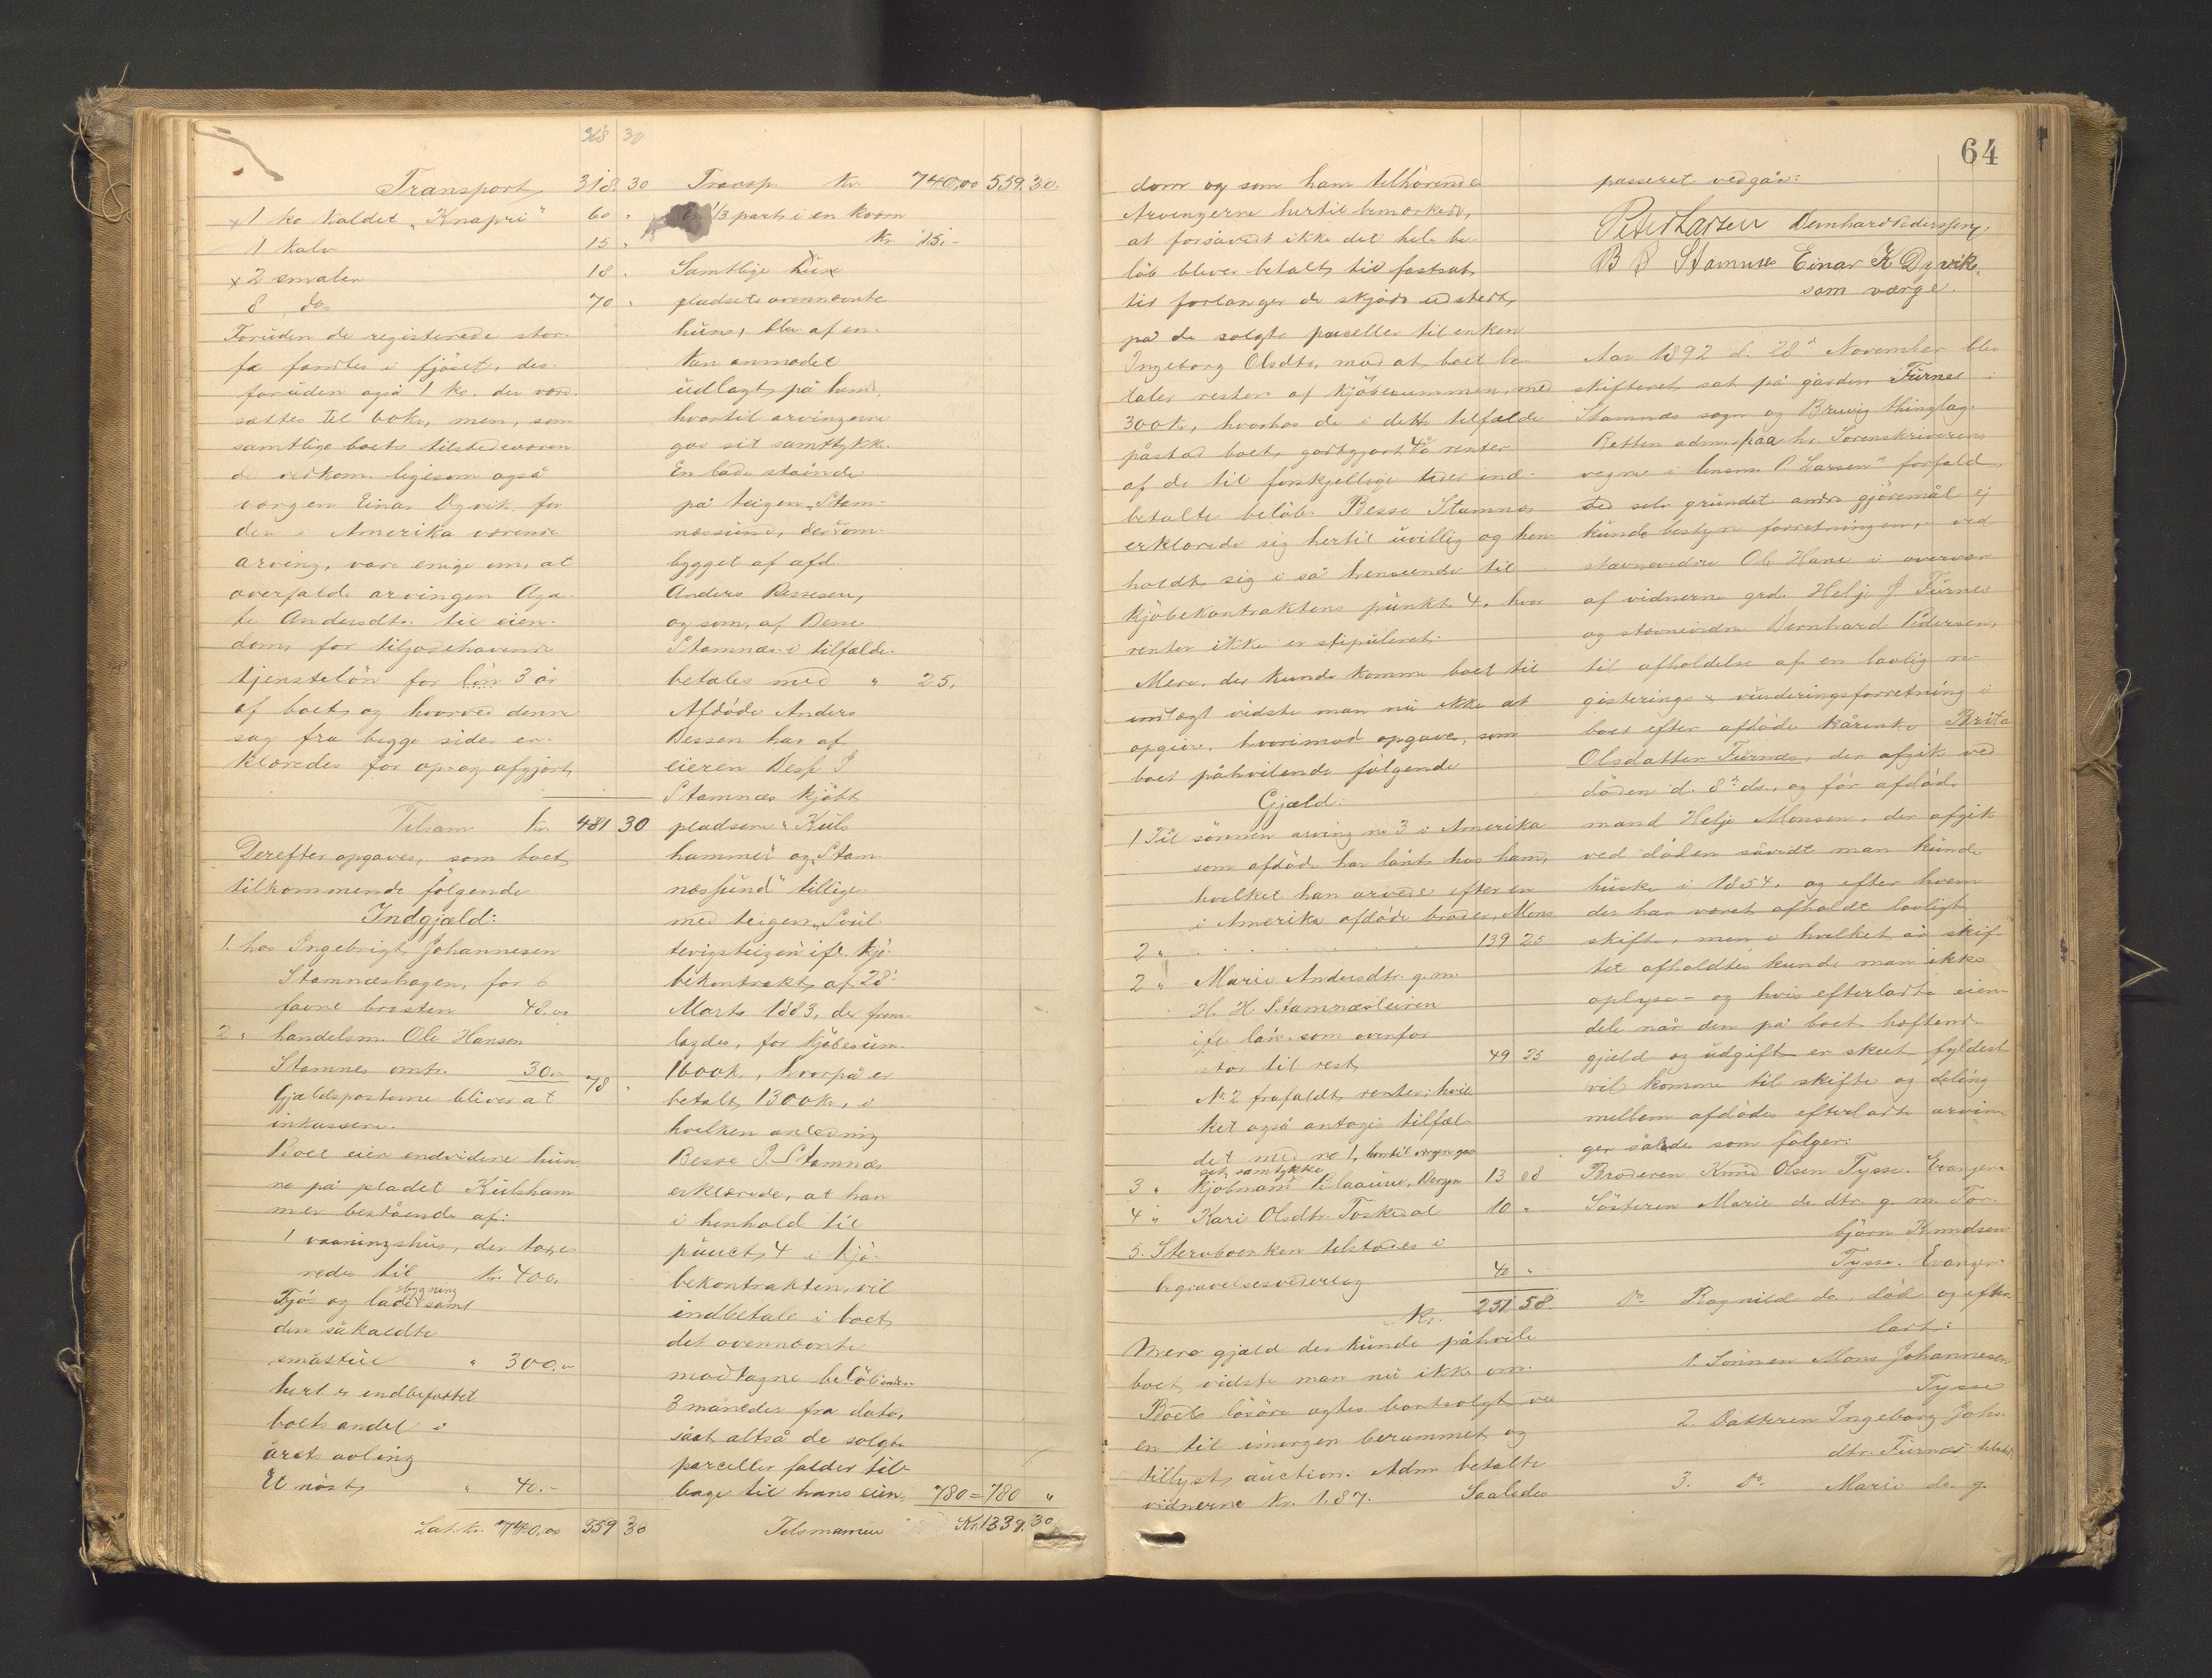 368 30
Transport 318 30
x 1 ko kaldet „Knapri" 60 "
1 kalv 15 "
x 2 smaler 18 "
8 do 70 "
Foruden de registerede stor-
fæ fandtes i fjöset, des-
foruden også 1 ko, der værd-
sættes til 60 kr, men, som
samtlige boets tilstedeværen-
de vedkom. ligesom også
værgen Einar Dyvik for
den i Amerika værende
arving, vare enige om, at
overfalde arvingen Aga-
te Andersdtr. til eien-
dom for tilgodehavende
tjenstelön for lön 3 år
af boet, og hvorved denne
sag fra begge sider er-
klæredes for op og afgjort,
Tilsam. kr. 481 30
Derefter opgaves, som boet
tilkommende fölgende
Indgjæld:
1. hos Ingebrigt Johannesen
Stamnæshagen, for 6
favne brosten 48.00
2 " handelsm. Ole Hansen
Stamnes omtr. 30.00 78 "
Gjældsposterne bliver at
inkassere.
Boet eier endvidere hu-
ne på pladst Kulsham-
mer bestående af:
1 vaaningshus, der taxe-
redes til kr. 400.
Fjös og ladebygning samt
den såkaldte
småstue " 300.00
heri er indbefattet
boets andel i
årets avling
Et nöst, " 40.-
Lat. kr. 740.00 559 30
Transp. kr. 740.00 559. 30.
En 1/3 part i en kværn
kr. 15.-
Samtlige disse
pladsets ovennævnte
huse, blev af en-
ken anmodet
udlagt på hende,
hvortil arvingerne
gav sit samtykke.
En lade stående
på teigen „Stam-
næssund, der om-
bygget af afd.
Anders Bessesen,
og som, af Besse
Stamnæs i tilfælde
betales med " 25.
Afdöde Anders
Bessen har af
eieren Besse J
Stamnæs kjöbt
pladsene „Kuls
hammer" og „Stam
næssund" tillige-
med teigen „Sul-
tevigsteigen" ifl. kjö-
bekontrakt, af 28'
Marts 1883, der frem-
lagdes, for kjöbesum.
1600 kr, hvorpå er
betalt, 1300 kr, i
hvilken anledning
Besse J. Stamnæs
erklærede, at han
i henhold til
punct, 4 i kjö-
bekontrakten, vil
indbetale i boet,
det ovennævnte
modtagne belöb inden
3 måneder fra dato,
såat altså de solgte
parceller falder til-
bage til hans eien- 780 = 780 "
Tilsmamen Kr. 1339. 30
64
dom og som ham tilhörende
Arvingerne hertil bemærkede,
at forsåvidt ikke det hele be-
löb bliver betalt, tid fastsat,
tid forlanger de skjöde udstedt,
på de solgte parceller til enken
Ingeborg Olsdtr, mod at boet be-
taler resten af kjöbesummen, med
300 kr, hvorhos de i dette tilfælde
påstod boet, godtgjort 4% renter
af de til forskjellige tider ind-
betalte belöb. Besse Stamnæs
erklærede sig hertil uvillig og hen-
holdt, sig i så henseende til
kjöbekontraktens punkt 4, hvor
renter ikke er stipuleret.
Mere, der kunde komme boet til
indtægt vidste man nu ikke at
opgive, hvorimod opgaves, som
boet påhvilende fölgende
Gjæld:
1 Til sönnen arving no 3 i Amerika
som afdöde har lånt hos ham,
hvilket han arvede efter en
i Amerika afdöde broder, Mons
2 " . . . . 139 25
2 " Marie Andersdtr. g. m.
H. H. Stamnæsleiren
ifl. lån, som ovenfor
står til rest, 49 25
No. 2 frafaldt, renter, hvil
ket også antages tilfæl-
det med no 1, hvortil værgen gav
sit samtykke
3 " Kjöbmand Blaauw, Bergen 13 08
4 " Kari Olsdtr. Toskedal 10 "
5. Stervboenken tilstodes i
begravelsesvederlag 40 "
Kr. 251 58.
Mere gjæld der kunde påhvile
boet, vidste man nu ikke om.
Boets lösöre agtes bortsolgt ved
en til imorgen berammet og
tillyst, auction. Adm betalte
vidnerne kr. 1.87. Saaledes
passeret vedgår:
Peter Larsen Bernhard Pederssen,
B J Stamnes Einar K Dyvik,
som værge.
Aar 1892 d. 28' November blev
skifteret sat på gården Furnes i
Stamnæs sogn og Bruvig thinglag.
Retten adm. paa hr. Sorenskriverens
vegne i lensm. P. Larsen's forfald,
ved selv grundet andre gjöremål ej
kunde bestyre forretningen, ved
stævnevidne Ole Hane i overvær
af vidnerne grd. Helje J. Furnes
og stævnevidne Bernhard Pedersen,
til afholdelse af en lovlig re-
gisterings & vurderingsforretning i
boet efter afdöde kårenke Brita
Olsdatter Furnæs, der afgik ved
döden d. 8' ds., og för afdöd
mand Helje Monsen, der afgik
ved döden såvidt man kunde
huske i 1854, og efter hvem
der har været afholdt lovligt
skifte, men i hvilket år skif-
tet afholdtes kunde man ikke
oplyse - og hvis efterladte eien-
dele når den på boet heftende
gjæld og udgift er skeet fyldest
vil komme til skifte og deling
mellem afdödes efterladte arvin-
ger således som fölger:
Broderen Knud Olsen Tysse. Evanger.
Sösteren Marie do. dtr. g. m. Tor-
björn Knudsen
Tysse. Evanger.
Do. Ragnild do, död og efter-
ladt:
1. Sönnen Mons Johannesen
Tysse
2. Datteren Ingeborg Johs.
dtr. Furnæs tilsted
3. Do. Marie do. g.